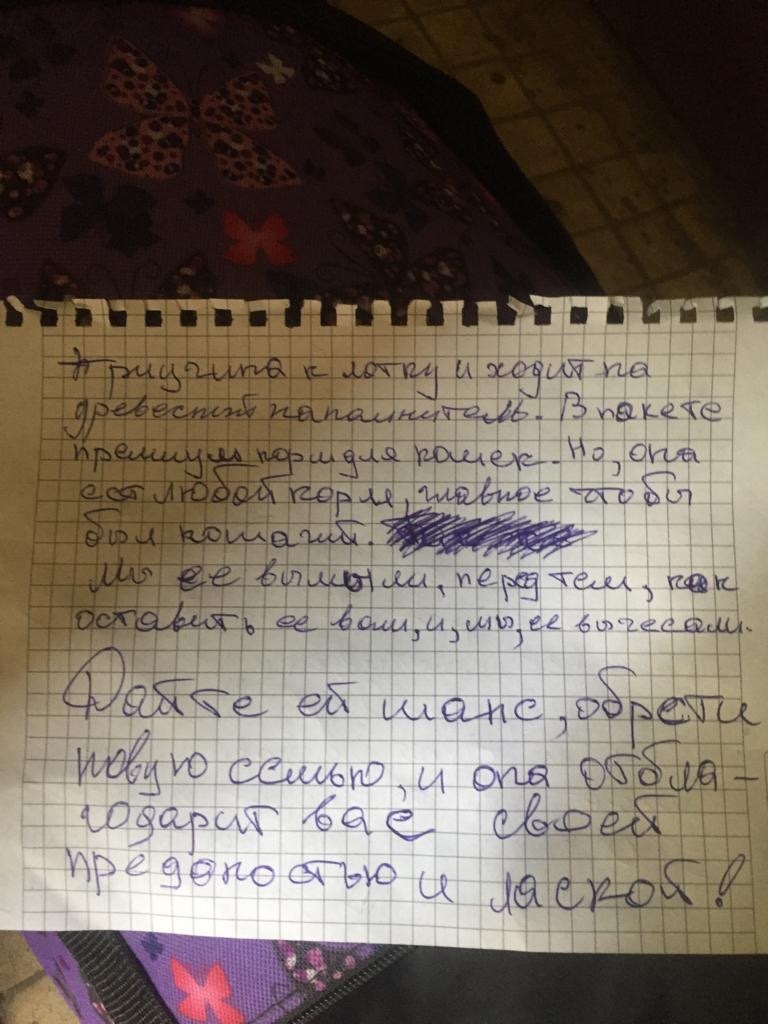 Приучина к лотку и ходит на
древестный наполнитель. В пакете
премиум корм для кошек. Но, она
ест любой корм, главное чтобы
был кошачий.
Мы ее вымыли, перед тем, как
оставить ее вам, и, мы, ее вычесали.
Дайте ей шанс, обрести
новую семью, и она отбла-
годарит вас своей
преданостью и лаской!